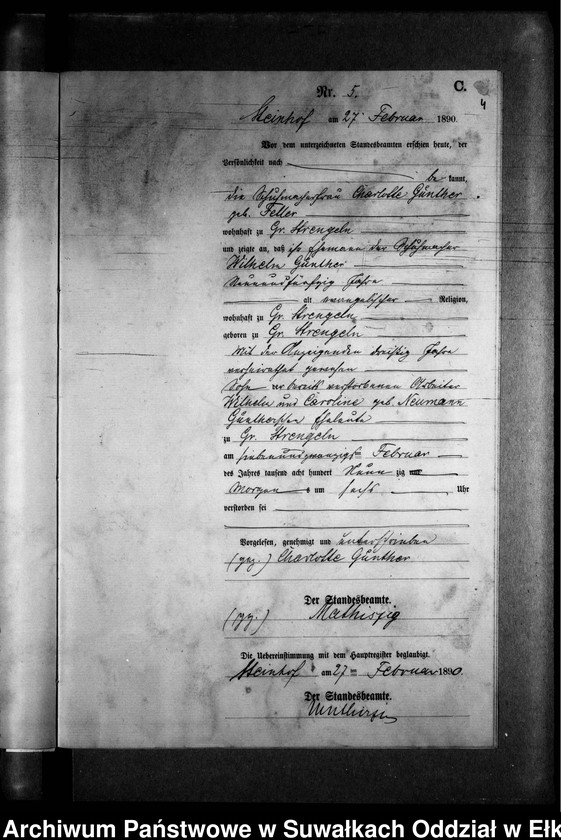 C.
Nr. 5.
4
Steinhof am 27ten Februar 1890.
Vor dem unterzeichneten Standesbeamten erschien heute, der
Persönlichkeit nach
be kannt,
die Schuhmacherfrau Charlotte Günther
geb. Feller
wohnhaft zu Gr. Strengeln
und zeigte an, daß ihr Ehemann der Schuhmacher
Wilhelm Günther
Neunundfünfzig Jahre
alt evangelischer Religion,
wohnhaft zu Gr. Strengeln
geboren zu Gr. Strengeln
mit der Anzeigenden dreißig Jahre
verheirathet gewesen
Sohn der bereits verstorbenen
Wilhelm und Caroline geb. Neumann
Güntherschen Eheleute
zu Gr. Strengeln
am siebenundzwanzigsten Februar
des Jahres tausend acht hundert Neun zig
Morgens um sechs Uhr
verstorben sei
Vorgelesen, genehmigt und unterschrieben
(gez.) Charlotte Günther
Der Standesbeamte.
(gez.) Mathiszig
Die Uebereinstimmung mit dem Hauptregister beglaubigt.
Steinhof am 27ten Februar 1890.
Der Standesbeamte.
Archiwum Państwowe w Suwałkach Oddział w Ełk